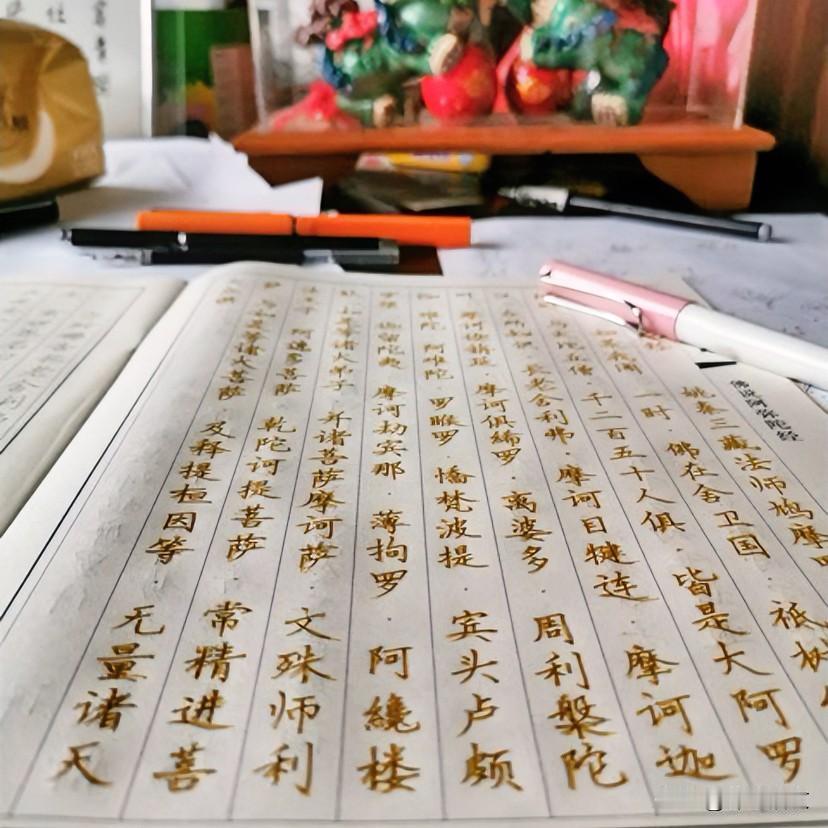 佛说阿弥陀经
姚秦三藏法师鸠摩
我闻·一时·佛在舍卫国·祇树
比丘僧·千二百五十人俱·皆是大阿罗
众所知识·长老舍利弗·摩诃目犍连·摩诃迦
叶·摩诃迦旃延·摩诃俱絺罗·离婆多·周利槃陀
伽·难陀·阿难陀·罗睺罗·憍梵波提·宾头卢颇
迦留陀夷·摩诃劫宾那·薄拘罗·阿繞楼
是等诸大弟子·并诸菩萨摩诃萨·文殊师利
王子·阿逸多菩萨·乾陀诃提菩萨·常精进菩
与如是等诸大菩萨·及释提桓因等·无量诸天